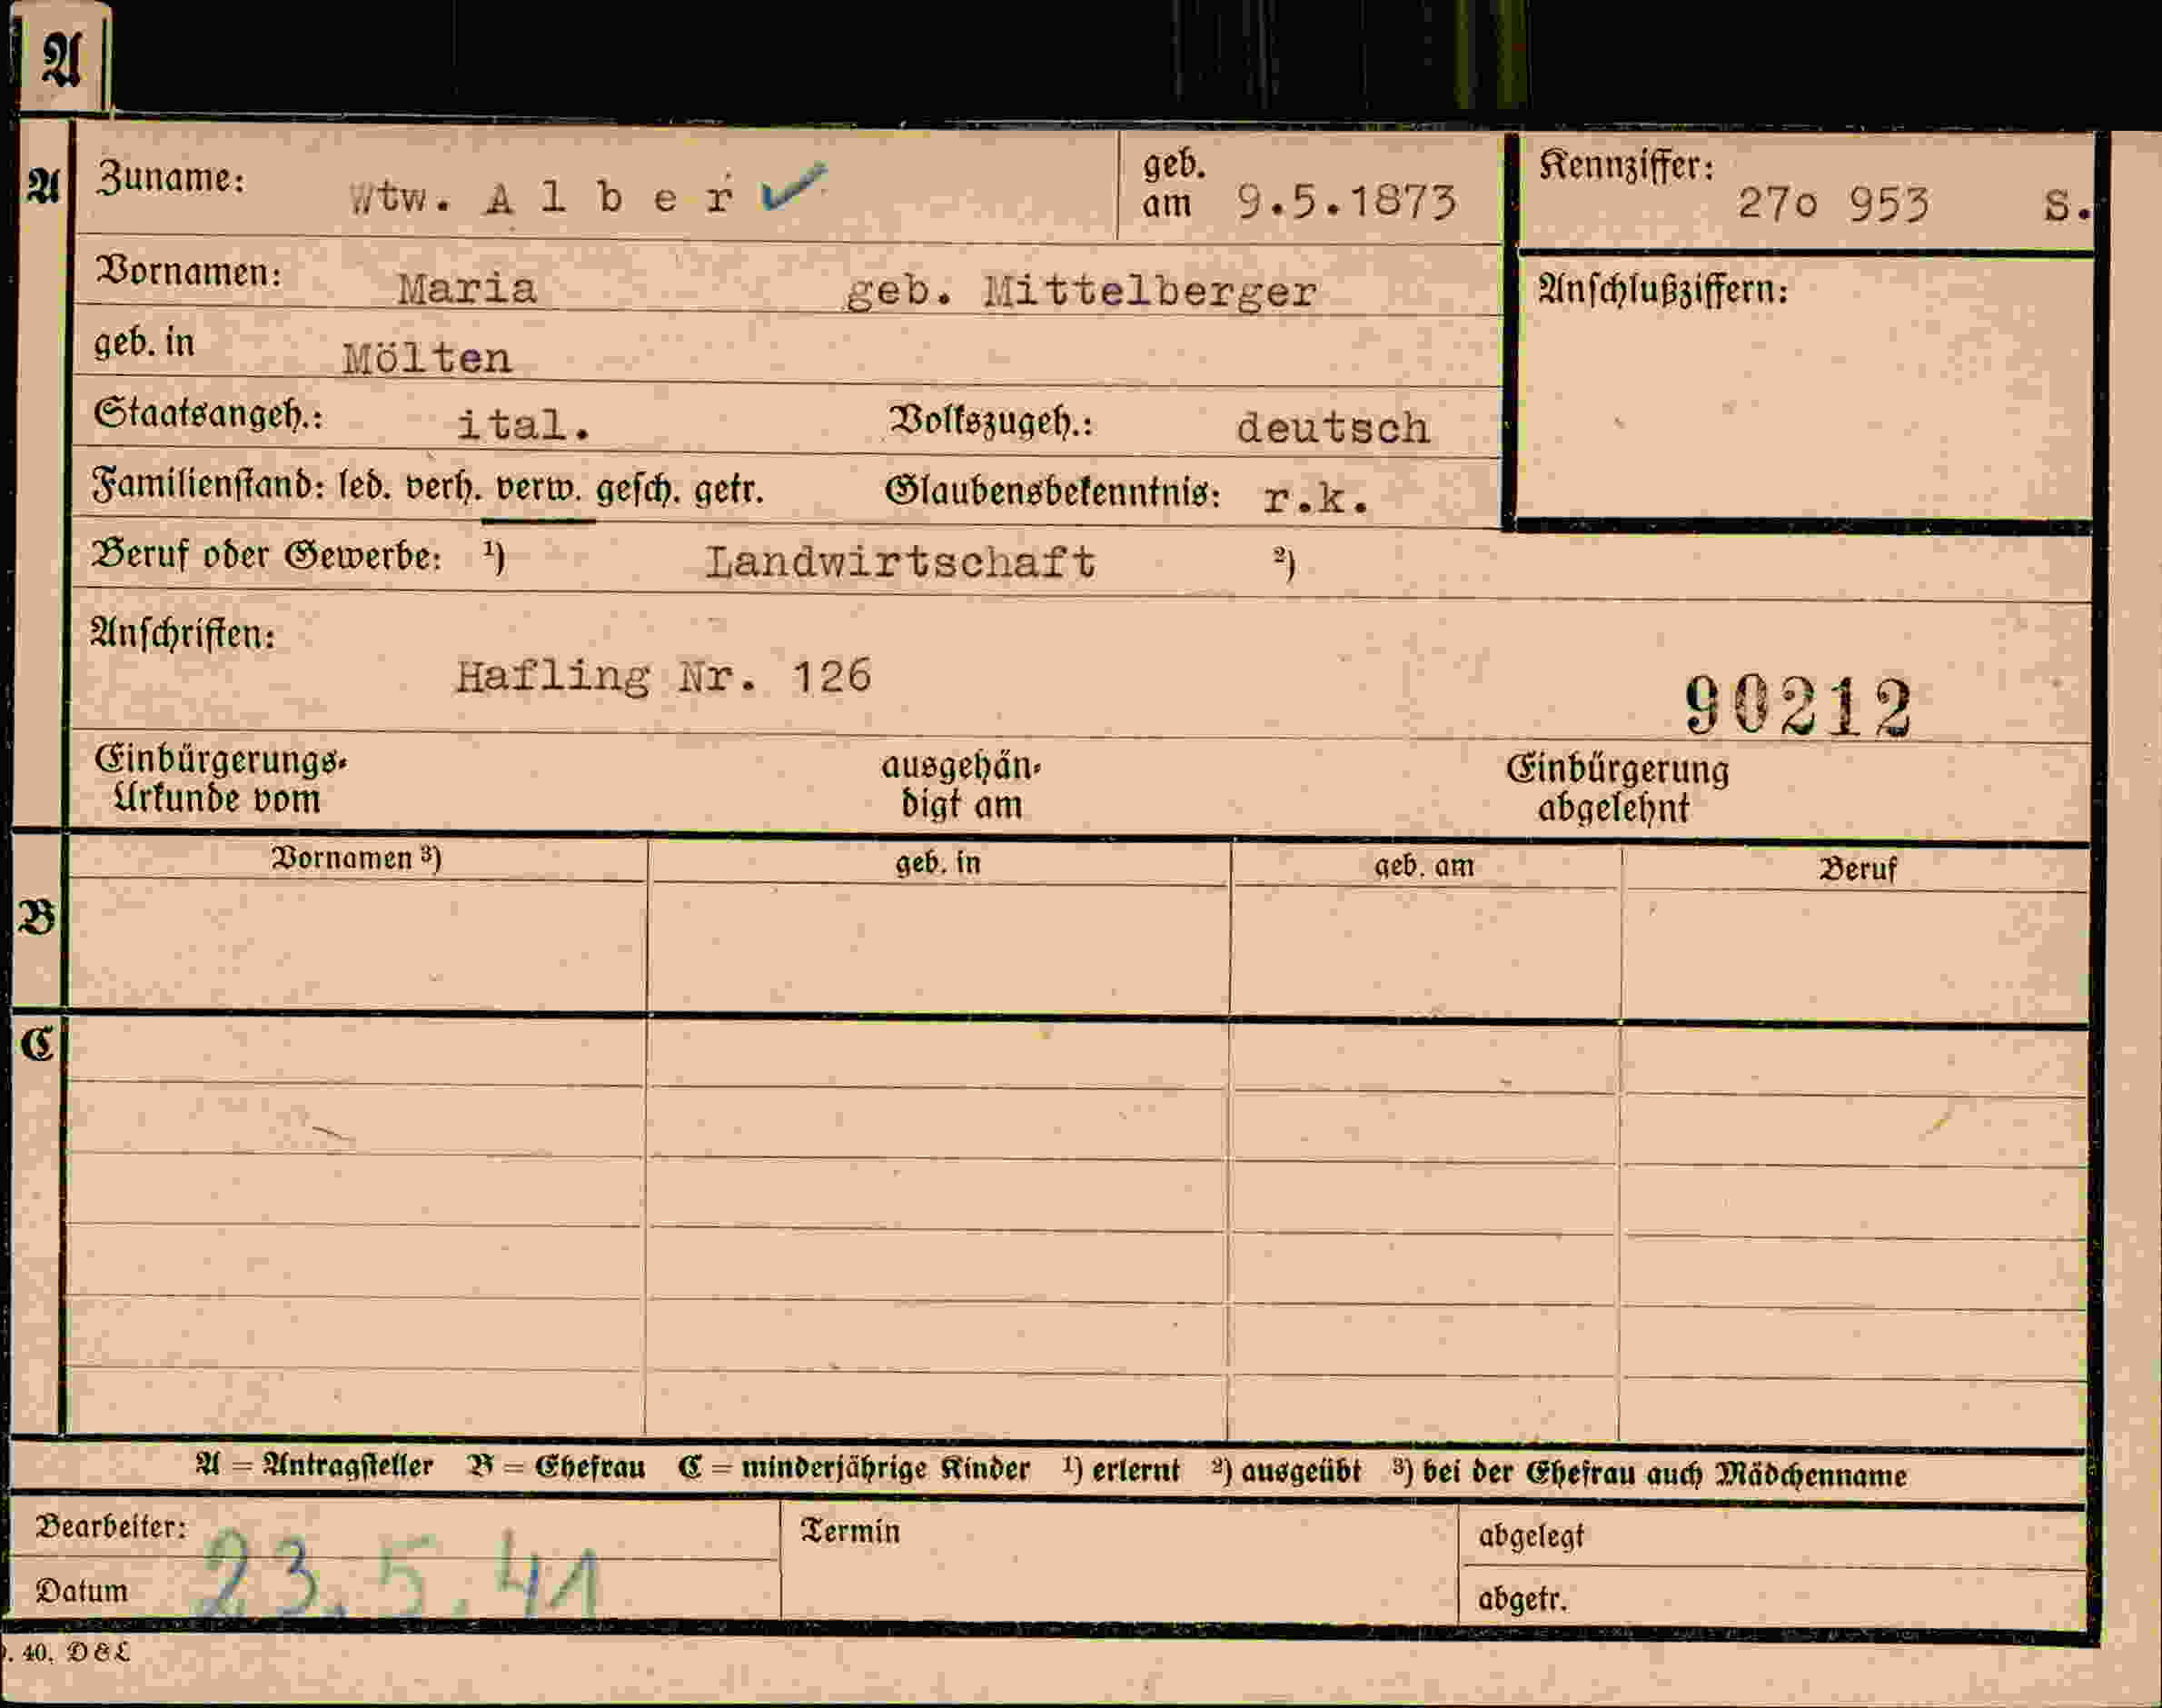 A
A
Zuname: Wtw. A l b e r geb. am 9.5.1873 Kennziffer: 27o 953 S.
Vornamen: Maria geb. Mittelberger Anschlußziffern:
geb. in Mölten
Staatsangeh.: ital. Volkszugeh.: deutsch
Familienstand: led. verh. verw. gesch. getr. Glaubensbekenntnis: r.k.
Beruf oder Gewerbe: ¹) Landwirtschaft ²)
Anschriften:
Hafling Nr. 126
90212
Einbürgerungs-
Urkunde vom
ausgehän-
digt am
Einbürgerung
abgelehnt
Vornamen ³) geb. in geb. am Beruf
B
C
A = Antragsteller B = Ehefrau C = minderjährige Kinder ¹) erlernt ²) ausgeübt ³) bei der Ehefrau auch Mädchenname
Bearbeiter: Termin abgelegt
Datum 23.5.41 abgetr.
. 40. D&L